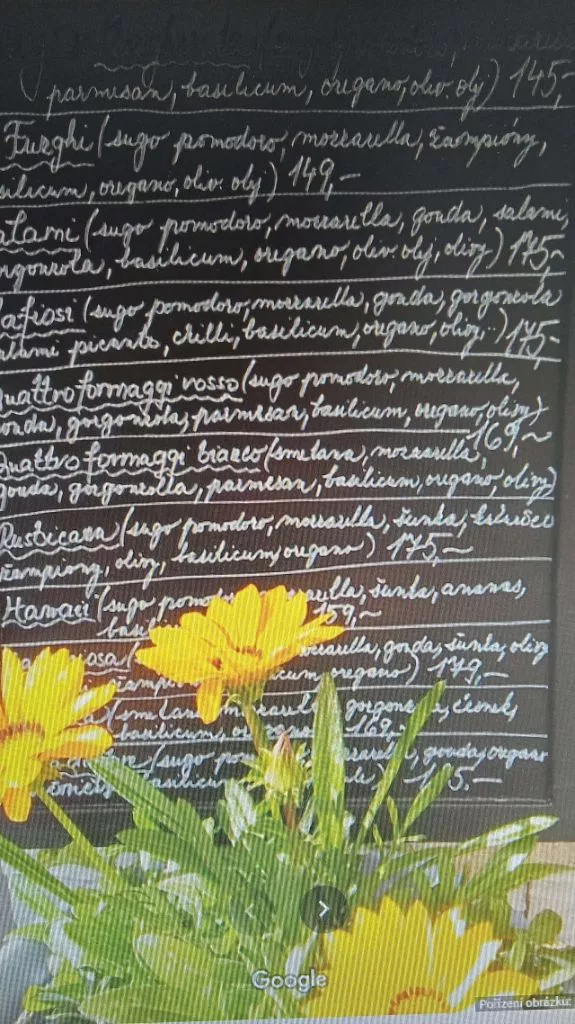 parmesan, basilicum, oregano, oliv. olj) 145,-
Funghi (sugo pomodoro, mozzarella, žampióny,
silicum, oregano, oliv. olj) 149,-
alami (sugo pomodoro, mozzarella, gouda, salami,
ngonzola, basilicum, oregano, oliv. olej, olivy) 175,-
afiosi (sugo pomodoro, mozzarella, gouda, gorgonzola
alami picante, chilli, basilicum, oregano, olivy) 175,-
uattro formaggi rosso (sugo pomodoro, mozzarella,
ouda, gorgonzola, parmesan, basilicum, oregano, olivy)
169,-
Quattro formaggi bianco (smetana, mozzarella,
gouda, gorgonzolla, parmesan, basilicum, oregano, olivy)
Rusticana (sugo pomodoro, mozzarella, šunka,
žampiony, olivy, basilicum, oregano) 175,-
Hawaii (sugo pomod rella, šunka, ananas,
basi 159,-
iosa ( ozzarella, gouda, šunka, olivy
žampi icum, oregano) 179,-
(smetan mozzarell gorgonzola, česnek,
basilicum, or 169,-
(sugo po mozzarella, gouda, oregano
basilicum 5,-
Google
Pořízení obrázku: